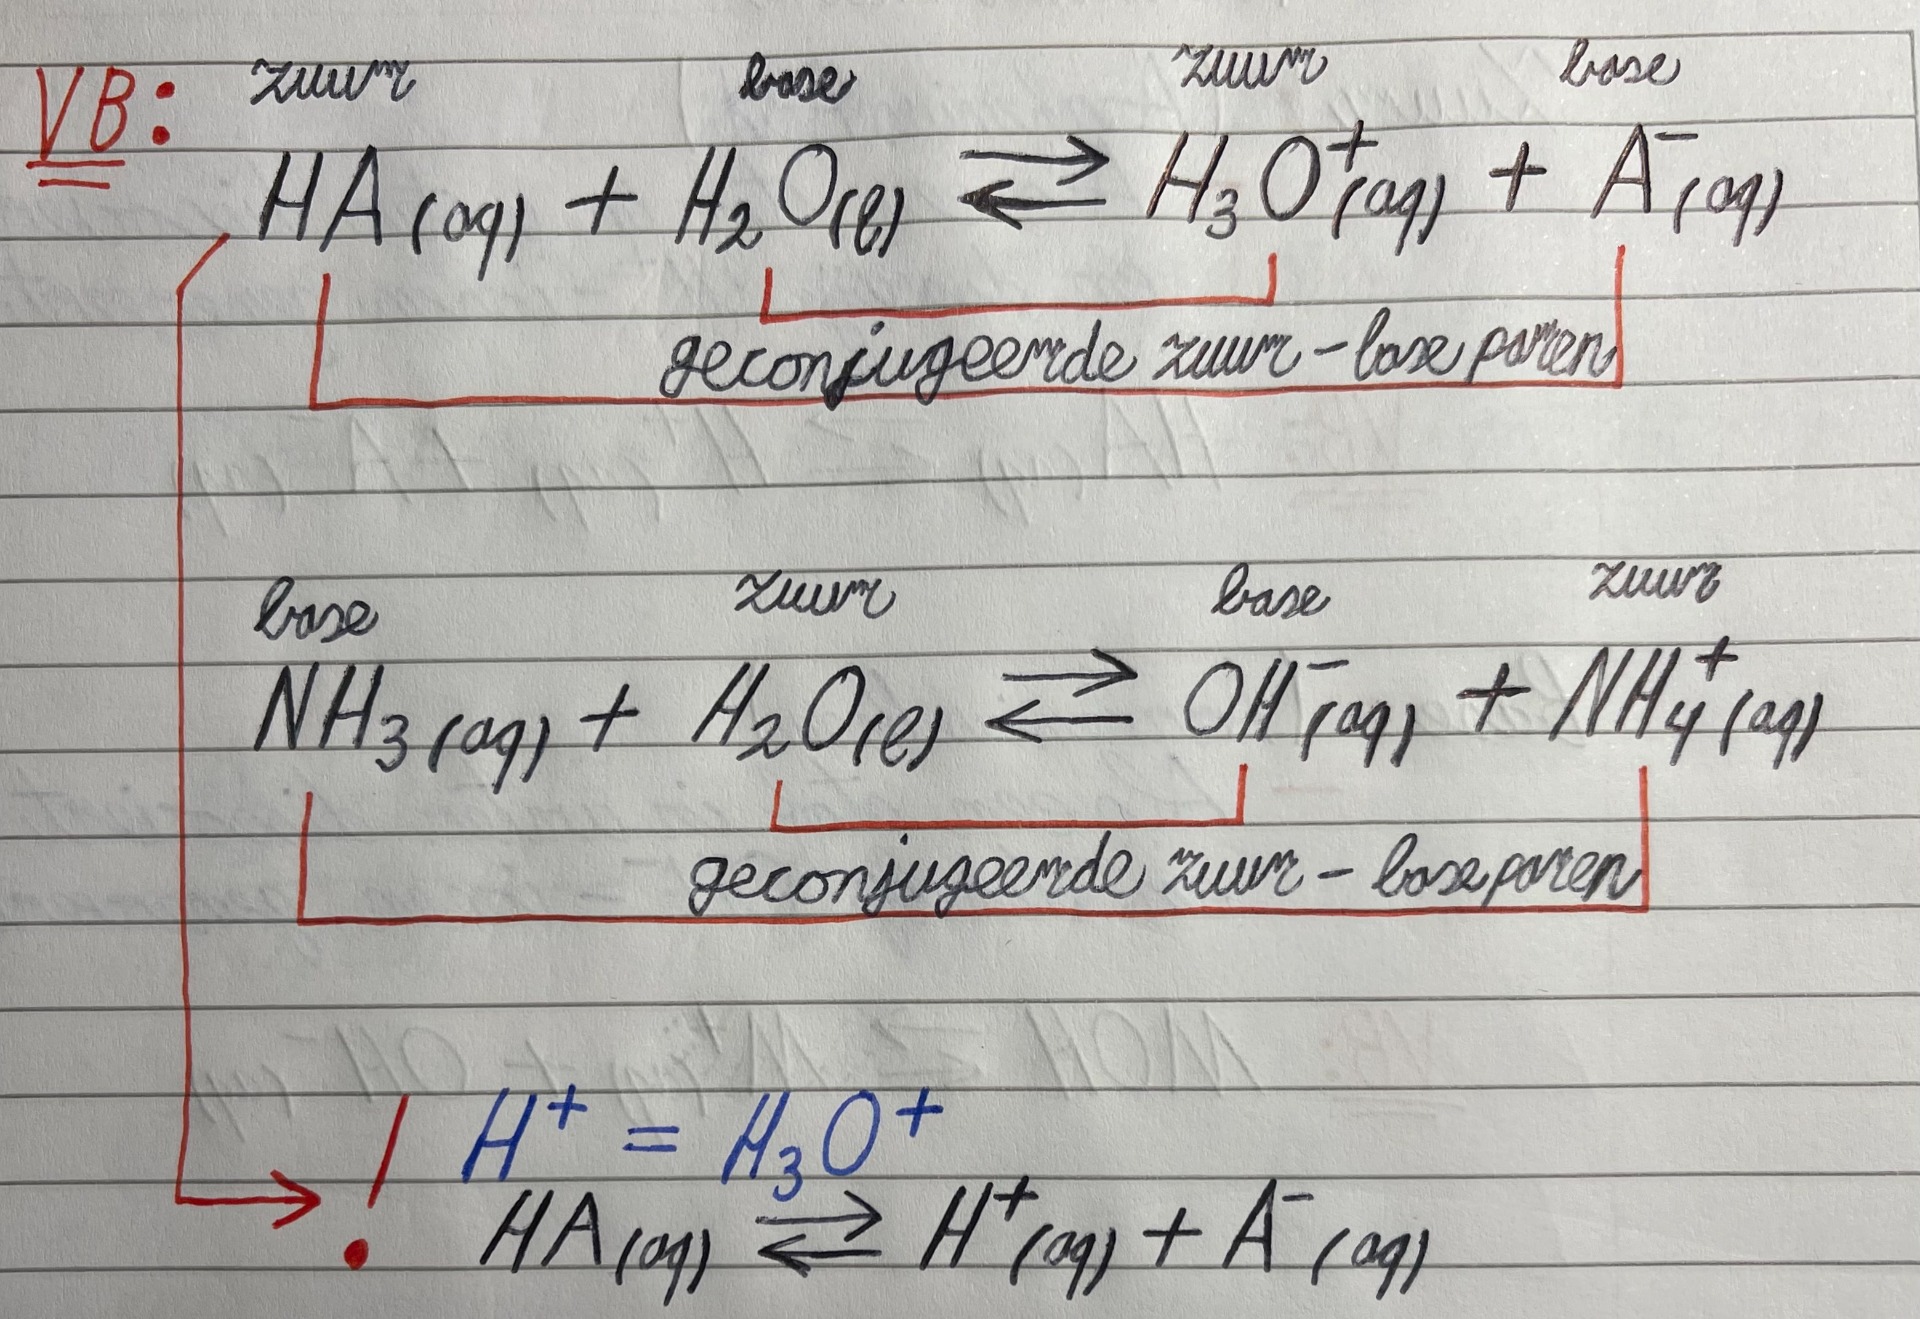 VB: zuur base zuur base
HA(aq) + H₂O(l) ⇄ H₃O⁺(aq) + A⁻(aq)
geconjugeerde zuur-base paren
base zuur base zuur
NH₃(aq) + H₂O(l) ⇄ OH⁻(aq) + NH₄⁺(aq)
geconjugeerde zuur-base paren
! H⁺ = H₃O⁺
HA(aq) ⇄ H⁺(aq) + A⁻(aq)